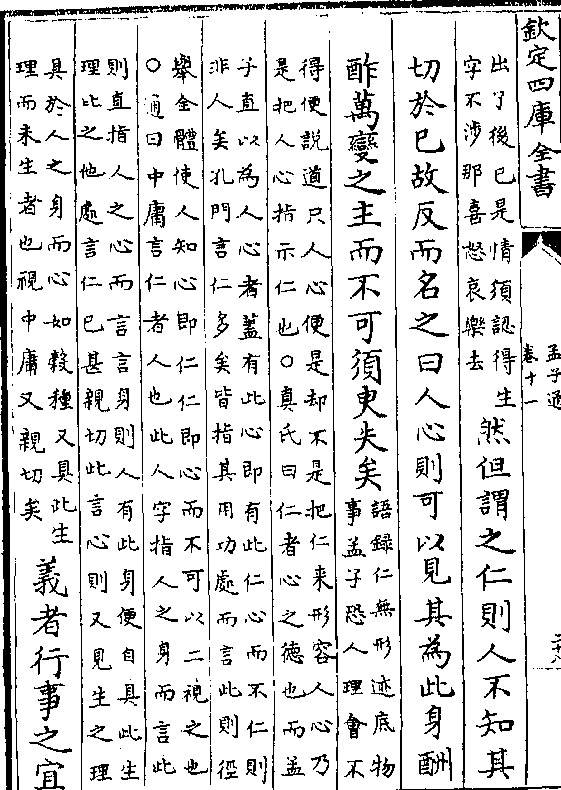 欽定四庫全書
孟子通
卷十一
出了後已是情須認得生
字不涉那喜怒哀樂去
然但謂之仁則人不知其
切於已故反而名之曰人心則可以見其為此身酬
酢萬變之主而不可須臾失矣
語録仁無形迹底物
事孟子恐人理會不
得便說道只人心便是却不是把仁来形容人心乃
是把人心指示仁也○真氏曰仁者心之德也而孟
子直以為人心者蓋有此心即有此仁心而不仁則
非人矣孔門言仁多矣皆指其用功處而言此則徑
舉全體使人知心即仁仁即心而不可以二視之也
○通曰中庸言仁者人也此人字指人之身而言此
則直指人之心而言言身則人有此身便自具此生
理此之他處言仁已甚親切此言心則又見生之理
具於人之身而心如穀種又具此生
理而未生者也視中庸又親切矣
義者行事之宜